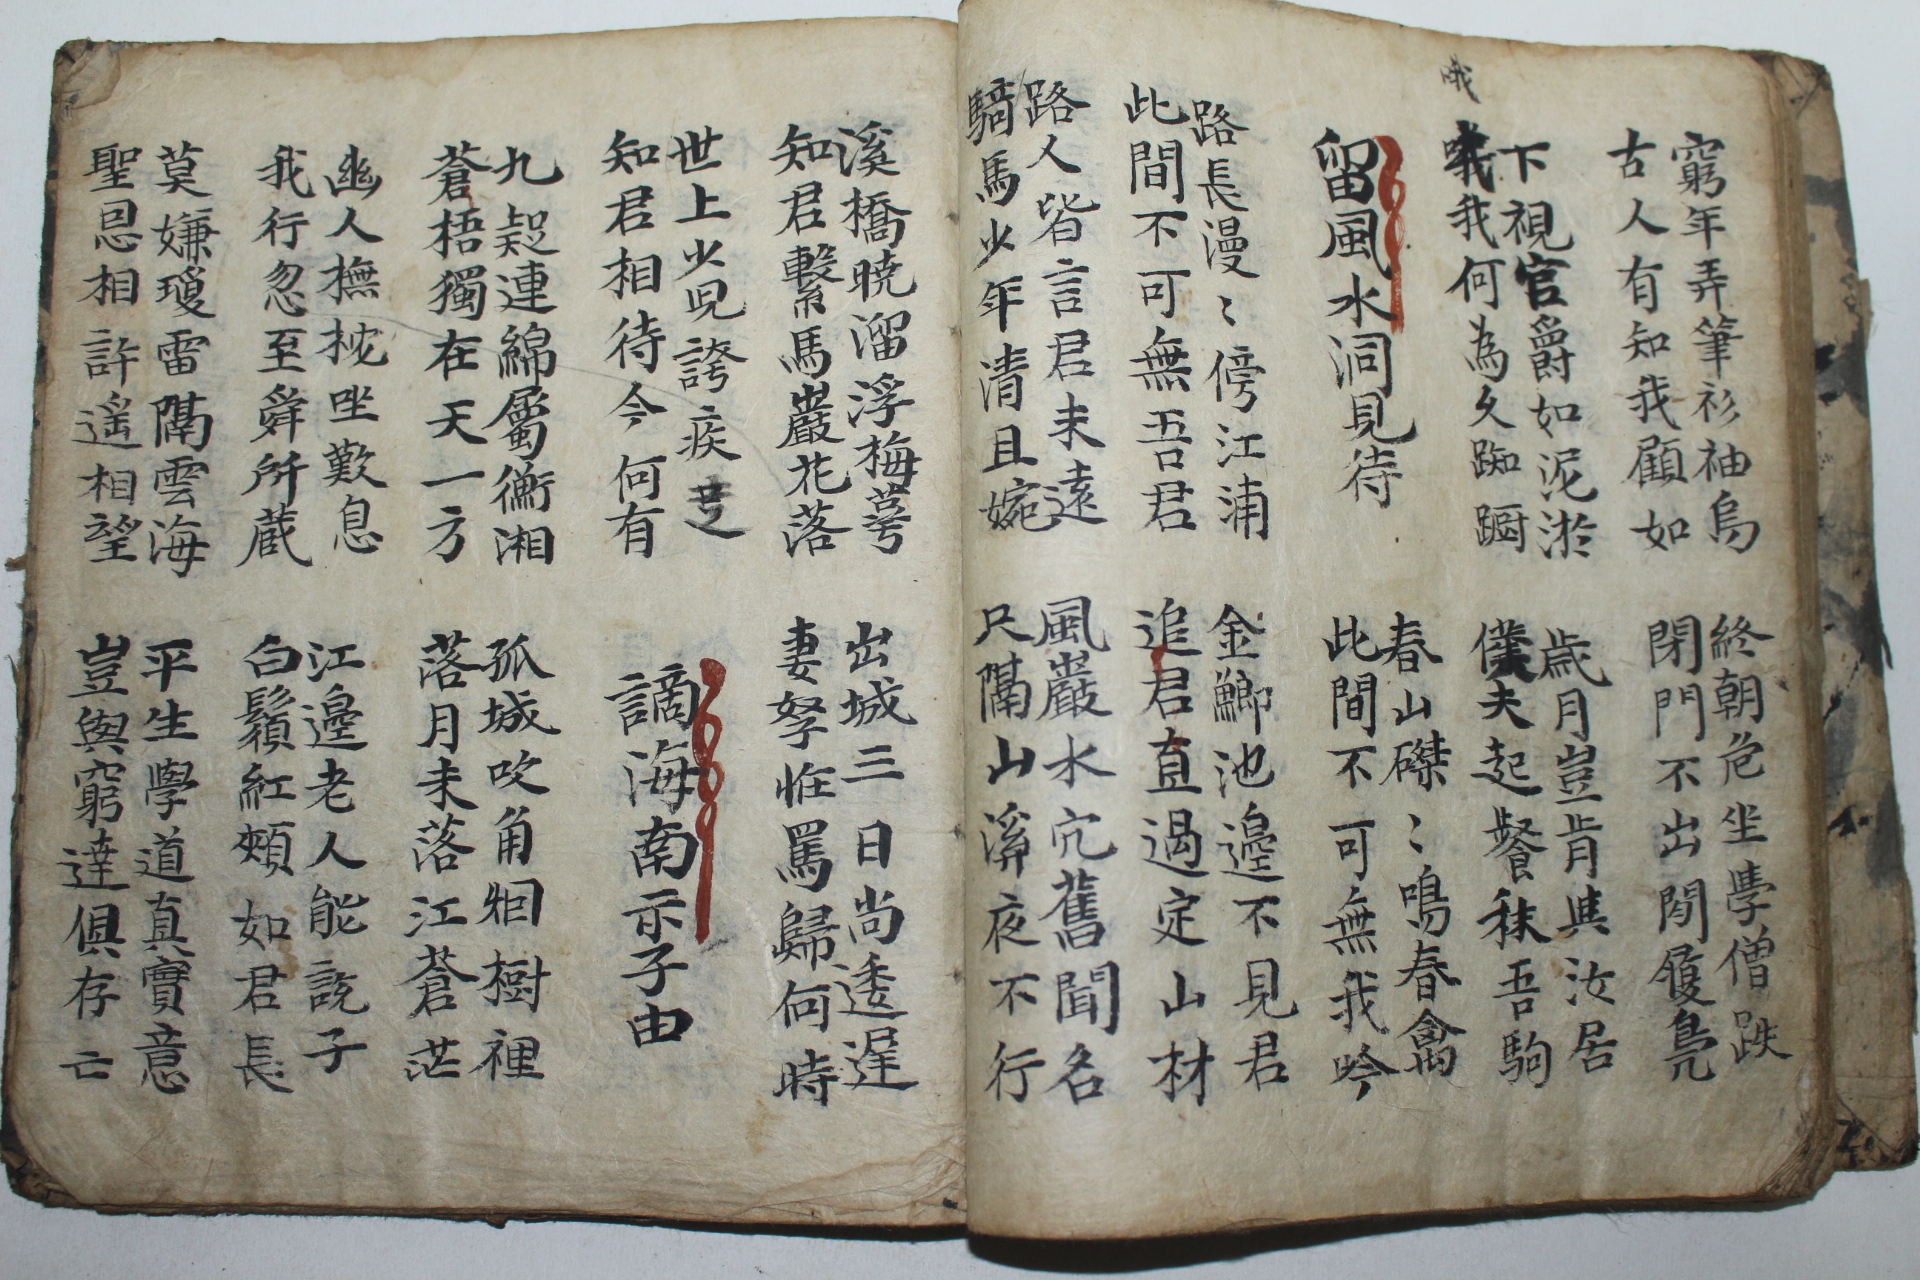 窮年弄筆衫袖烏
古人有知我顧如
終朝危坐學僧趺
閉門不出閒履鳧
下視官爵如泥淤
我何為久踟躕
歲月豈肯與汝居
僕夫起餐秣吾駒
留風水洞見待
春山磔〻鳴春禽
此間不可無我吟
路長漫〻傍江浦
此間不可無吾君
金鯽池邊不見君
追君直過定山材
路人皆言君未遠
騎馬少年清且婉
風巖水穴舊聞名
只隔山溪夜不行
溪橋曉溜浮梅萼
知君繫馬巖花落
出城三日尚逶遲
妻孥恠罵歸何時
世上少児誇疾走
知君相待今何有
謫海南示子由
九疑連綿屬衡湘
蒼梧獨在天一方
孤城吹角烟樹裡
落月未落江蒼茫
幽人撫枕坐歎息
我行忽至舜所蔵
江邊老人能說子
白鬚紅頰如君長
莫嫌瓊雷隔雲海
聖恩相許遙相望
平生學道真實意
豈與窮達俱存亡